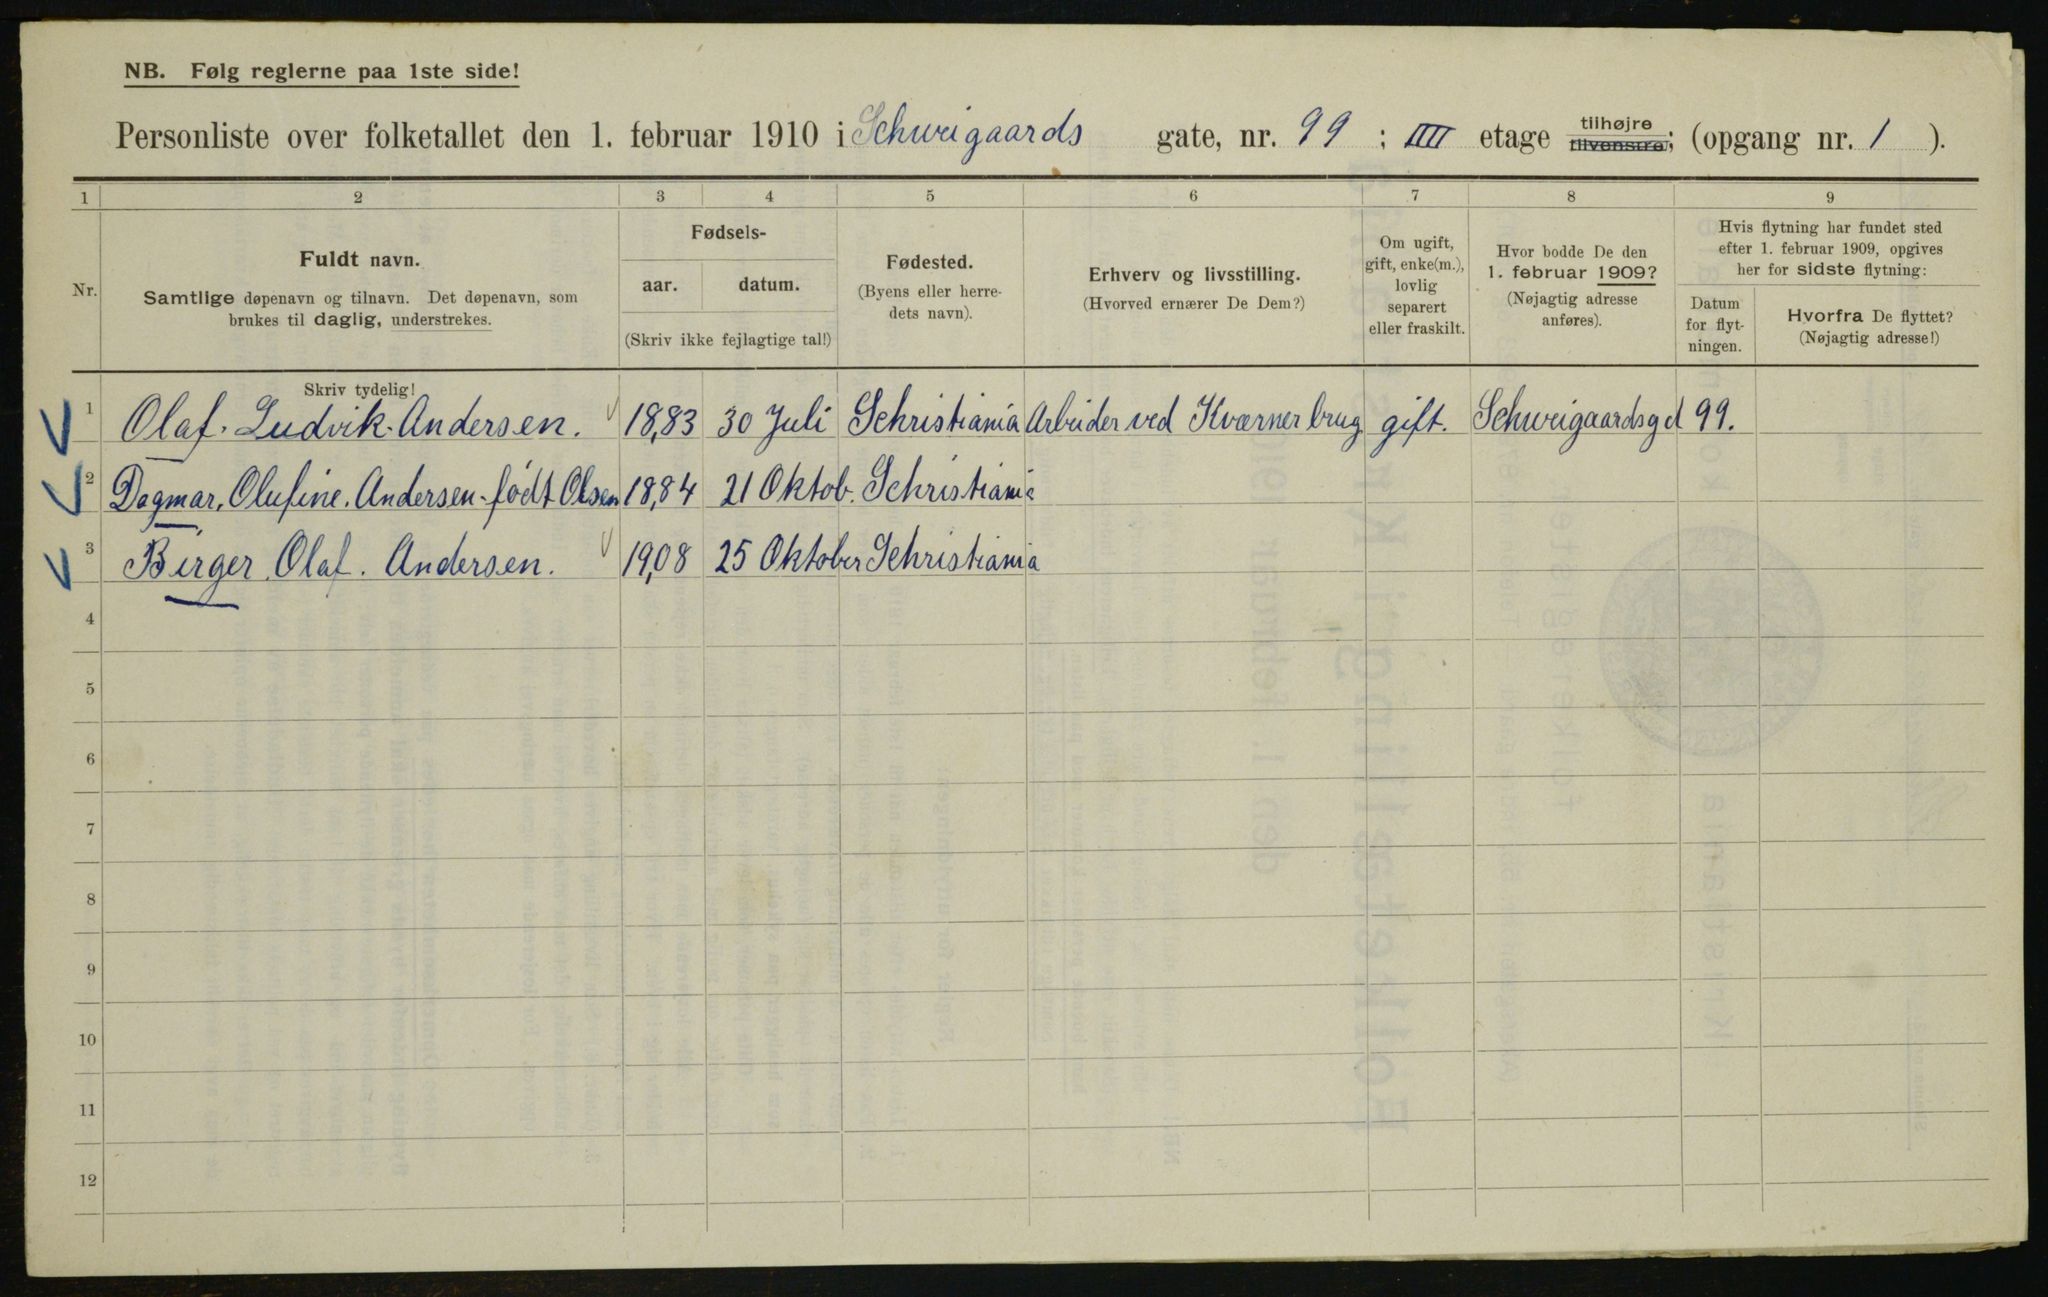 NB. Følg reglerne paa 1ste side!
Personliste over folketallet den 1. februar 1910 i Schweigaards gate, nr. 99 ; IIII etage tilhøjre tilvenstre; (opgang nr. 1 ).
1 2 3 4 5 6 7 8 9
Nr.
Fuldt navn.
Samtlige døpenavn og tilnavn. Det døpenavn, som
brukes til daglig, understrekes.
Fødsels-
aar. datum.
(Skriv ikke fejlagtige tal!)
Fødested.
(Byens eller herre-
dets navn).
Erhverv og livsstilling.
(Hvorved ernærer De Dem?)
Om ugift,
gift, enke(m.),
lovlig
separert
eller fraskilt.
Hvor bodde De den
1. februar 1909?
(Nøjagtig adresse
anføres).
Hvis flytning har fundet sted
efter 1. februar 1909, opgives
her for sidste flytning:
Datum
for flyt-
ningen.
Hvorfra De flyttet?
(Nøjagtig adresse!)
Skriv tydelig!
1 Olaf. Ludvik. Andersen. 18,83 30 Juli Schristiania Arbeider ved Kværner brug gift. Schweigaardsgd 99.
2 Dagmar. Olufine. Andersen-født Olsen 18,84 21 Oktob. Schristiania
3 Birger Olaf. Andersen. 19,08 25 Oktober Schristiania
4
5
6
7
8
9
10
11
12